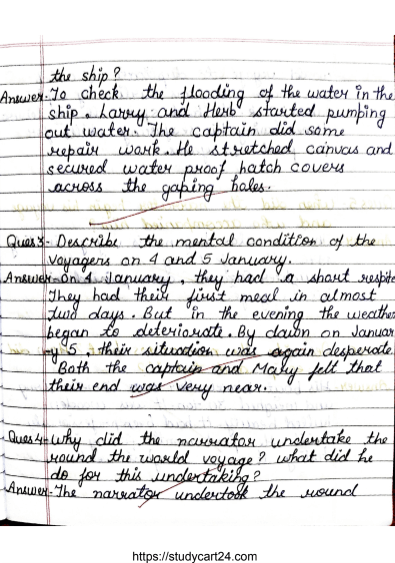 the ship?
Answer- To check the flooding of the water in the
ship. Larry and Herb started pumping
out water. The captain did some
repair work. He stretched canvas and
secured water proof hatch covers
across the gaping holes.
Ques 3- Describe the mental condition of the
voyagers on 4 and 5 January.
Answer- on 4 January, they had a short respite
They had their first meal in almost
two days. But in the evening the weather
began to deteriorate. By dawn on Januar
-y 5, their situation was again desperate
Both the captain and Mary felt that
their end was very near.
Ques 4- why did the narrator undertake the
round the world voyage? what did he
do for this undertaking?
Answer- The narrator undertook the round
https://studycart24.com